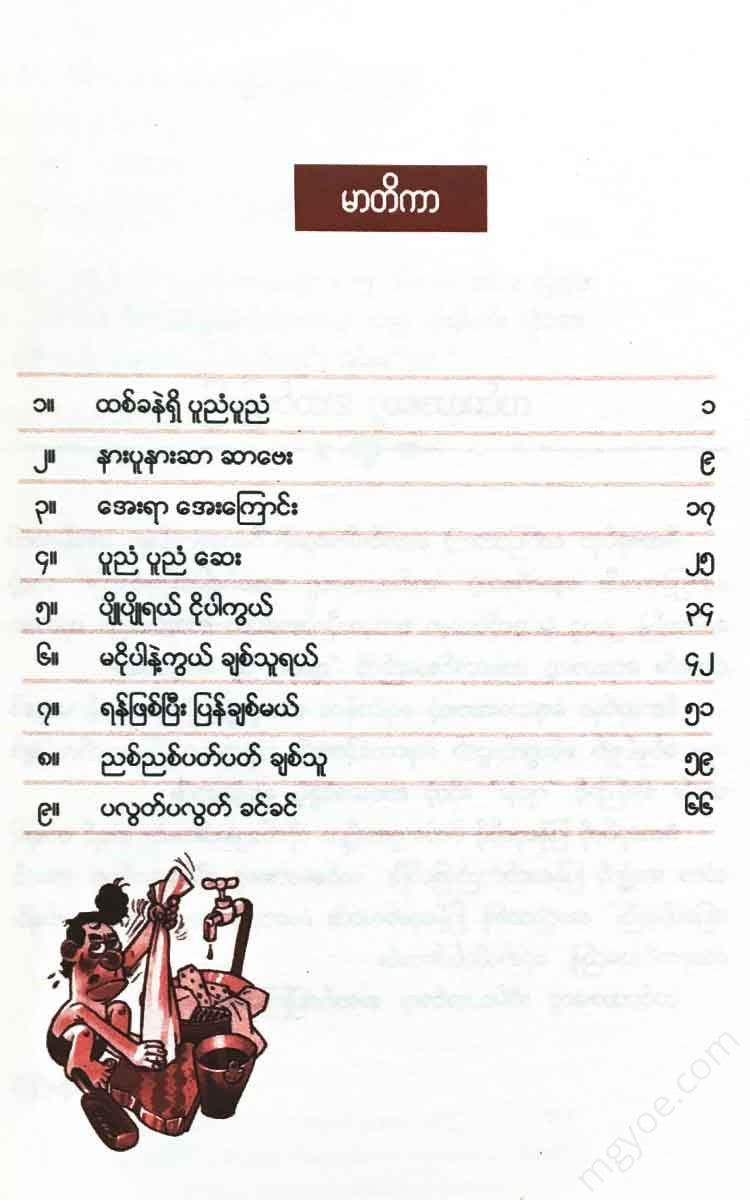 မာတိကာ
၁။ ထစ်ခနဲရှိ ပူညံပူညံ ၁
၂။ နားပူနားဆာ ဆာဗေး ၉
၃။ အေးရာ အေးကြောင်း ၁၇
၄။ ပူညံ ပူညံ ဆေး ၂၅
၅။ ပျိုပျိုရယ် ငိုပါကွယ် ၃၄
၆။ မငိုပါနဲ့ကွယ် ချစ်သူရယ် ၄၂
၇။ ရန်ဖြစ်ပြီး ပြန်ချစ်မယ် ၅၁
၈။ ညစ်ညစ်ပတ်ပတ် ချစ်သူ ၅၉
၉။ ပလွတ်ပလွတ် ခင်ခင် ၆၆
mgyoe.com